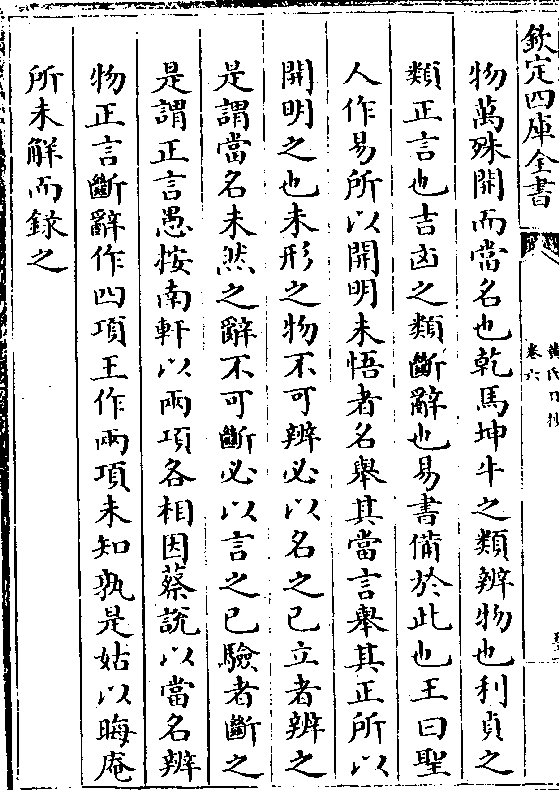 欽定四庫全書
黃氏日抄
卷六
物萬殊開而當名也乾馬坤牛之類辨物也利貞之
類正言也吉凶之類斷辭也易書備於此也王曰聖
人作易所以開明未悟者名舉其當言舉其正所以
開明之也未形之物不可辨必以名之已立者辨之
是謂當名未然之辭不可斷必以言之已驗者斷之
是謂正言愚按南軒以兩項各相因蔡說以當名辨
物正言斷辭作四項王作兩項未知孰是姑以晦庵
所未解而錄之